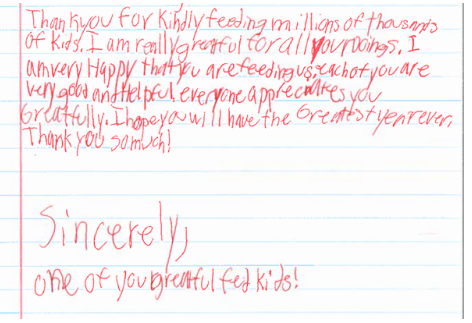 Thank you for kindly feeding millions of thousands
of kids. I am really greatful for all your doings. I
am very Happy that you are feeding us, each of you are
very good and Helpful, everyone apprecates you
Greatfully. I hope you will have the Greatest year ever.
Thank you so much!
Sincerely,
one of you greatful fed kids!